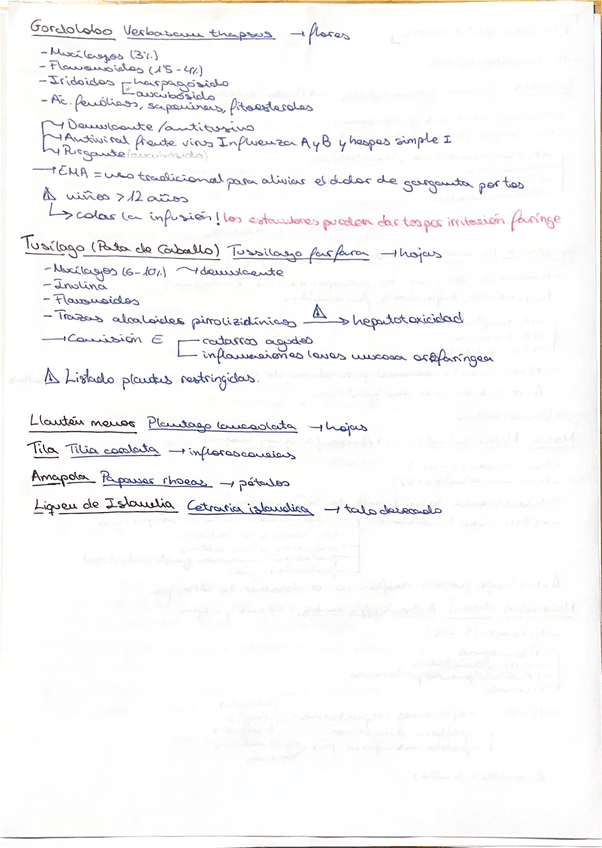 Gordolobo Verbascum thapsus → flores
- Mucílagos (3%)
- Flavonoides (1'5-4%)
- Iridoides harpagósido
aucubósido
- Ác. fenólicos, saponinas, fitoesteroles
→ Demulcente/antitusivo
→ Antiviral frente virus Influenza A y B y herpes simple I
→ Purgante (aucubósido)
→ EMA = uso tradicional para aliviar el dolor de garganta por tos
⚠ niños > 12 años
↳ colar la infusión! los estambres pueden dar tos por irritación faringe
Tusílago (Pata de Caballo) Tussilago farfara → hojas
- Mucílagos (6-10%) → demulcente
- Inulina
- Flavonoides
- Trazas alcaloides pirrolizidínicos ⚠ → hepatotoxicidad
→ Comisión E catarros agudos
inflamaciones leves mucosa orofaríngea
⚠ Listado plantas restringidas.
Llantén menor Plantago lanceolata → hojas
Tila Tilia cordata → inflorescencias
Amapola Papaver rhoeas → pétalos
Liquen de Islandia Cetraria islandica → talo desecado